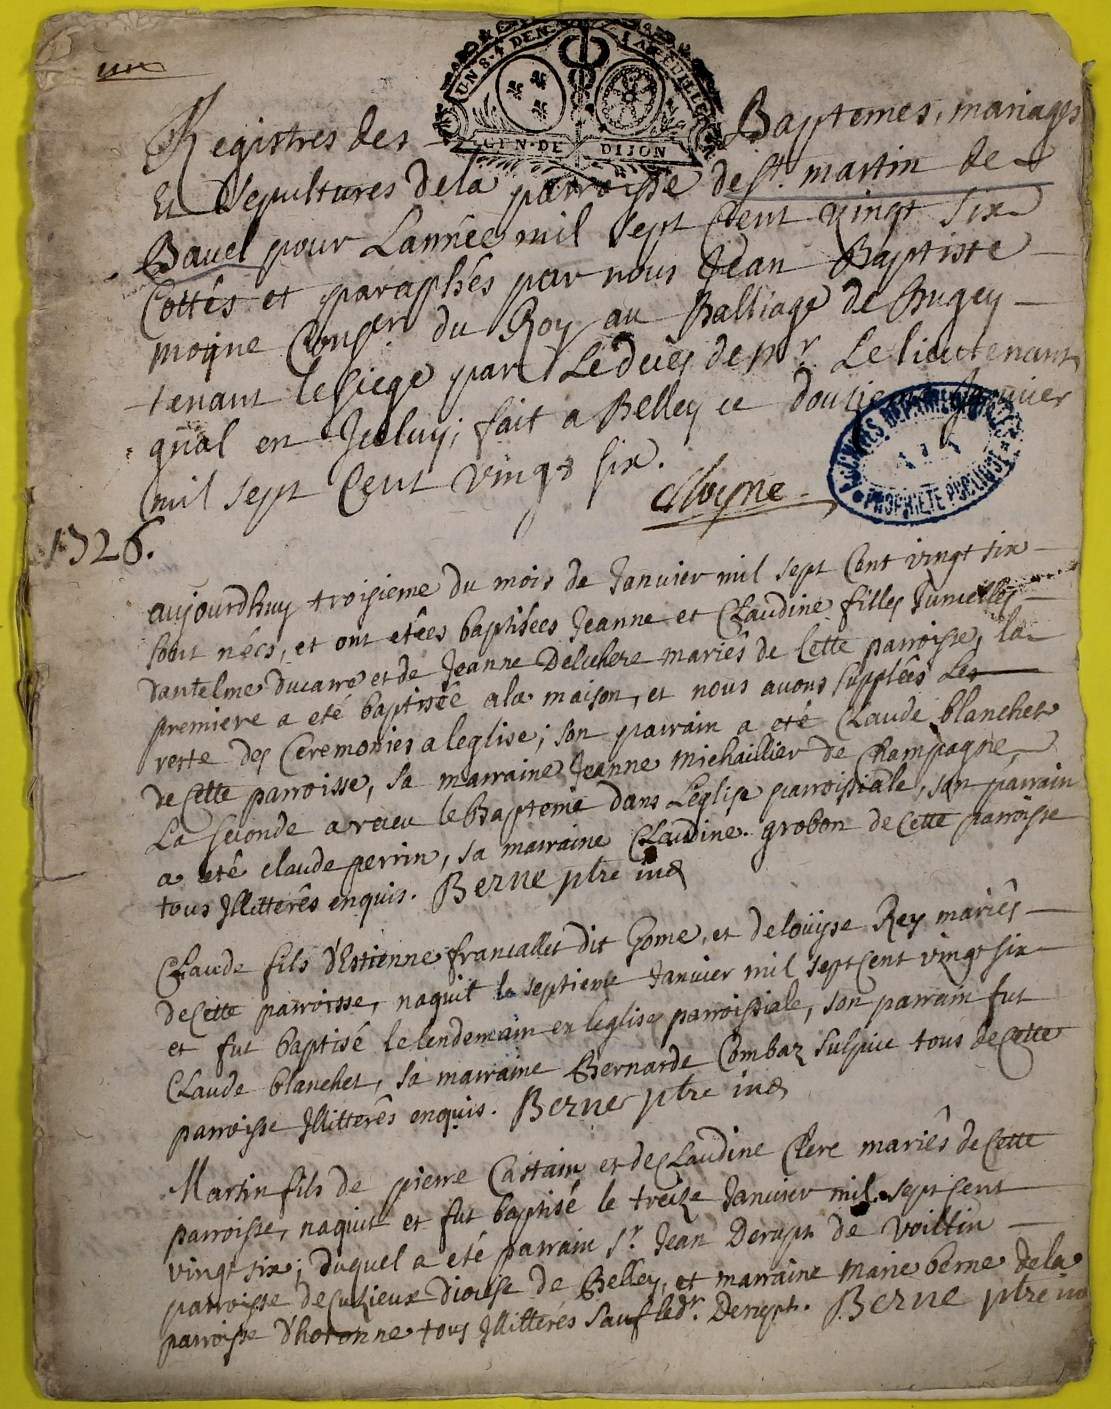 un
UN S. 4 DEN. LA FEUILLE
GEN. DE DIJON
Registres des Baptemes, mariages
Et Sepultures de la parroisse de st. martin de
Bavel pour Lannée mil sept Cent vingt six
Cottés et paraphés par nous Jean Baptiste
moyne Conser. du Roy au Balliage de Bugey
tenant le siege par Le deces de mr. Le lieutenant
gnal en Iceluy; fait a Belley ce douzieme Janvier
mil sept Cent vingt six.
Moyne
ARCHIVES DEPARTEMENTALES
PROPRIETE PUBLIQUE
1726.
aujourdhuy troisieme du mois de Janvier mil sept Cent vingt six
sont nées, et ont etées baptisées Jeanne et Claudine filles Jumelles
dantelme ducarre et de Jeanne Deluhere mariés de Cette parroisse, la
premiere a eté baptisée ala maison, et nous avons supplées Les
reste des Ceremonies a leglise; son parrain a eté Claude blanchet
de Cette parroisse, sa marraine Jeanne michaillier de Champagne,
La seconde a receu le Bapteme dans L'eglise parroissiale, son parrain
a eté claude perrin, sa marraine Claudine grobon de Cette parroisse
tous Illitterés enquis. Berne ptre
Claude fils d'Estienne francallet dit Gome, et de loüyse Rey mariés
de Cette parroisse, naquit le septieme Janvier mil sept Cent vingt six
et fut baptisé le lendemain en leglise parroissiale, son parrain fut
Claude blanchet, sa marraine Bernarde Combaz Sulpice tous de Cette
parroisse Illitterés enquis. Berne ptre
Martin fils de pierre Castain et de Claudine Clere mariés de Cette
parroisse, naquit et fut baptisé le treize Janvier mil sept cent
vingt six; duquel a eté parrain Sr. Jean Deruph de Voillin
parroisse de Cuzieux diocese de Belley, et marraine marie berne de la
parroisse d'hotonne tous Illitterés sauf led. Sr. Deruph. Berne ptre